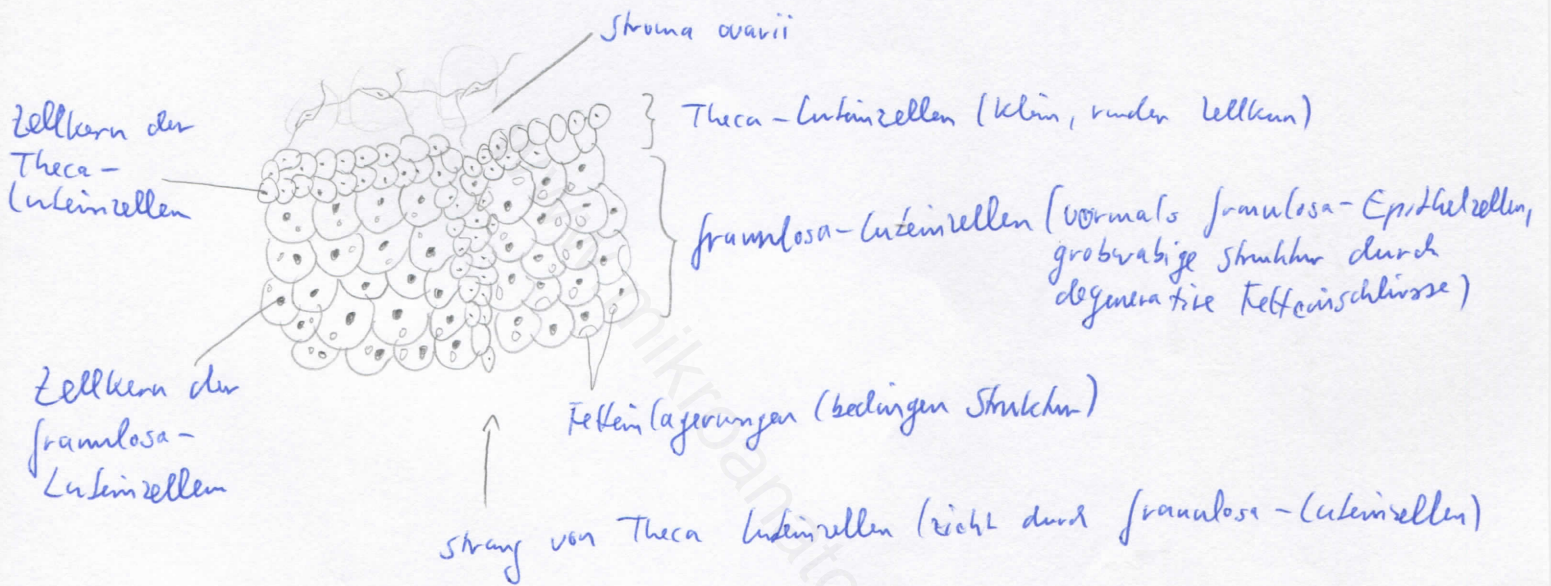 Stroma ovarii
Theca-Luteinzellen (klein, runder Zellkern)
Zellkern der
Theca-
Luteinzellen
Granulosa-Luteinzellen (vormals Granulosa-Epithelzellen,
grobwabige Struktur durch
degenerative Fetteinschlüsse)
Zellkern der
Granulosa-
Luteinzellen
Fetteinlagerungen (bedingen Struktur)
Strang von Theca Luteinzellen (zieht durch Granulosa-Luteinzellen)
mikroanato